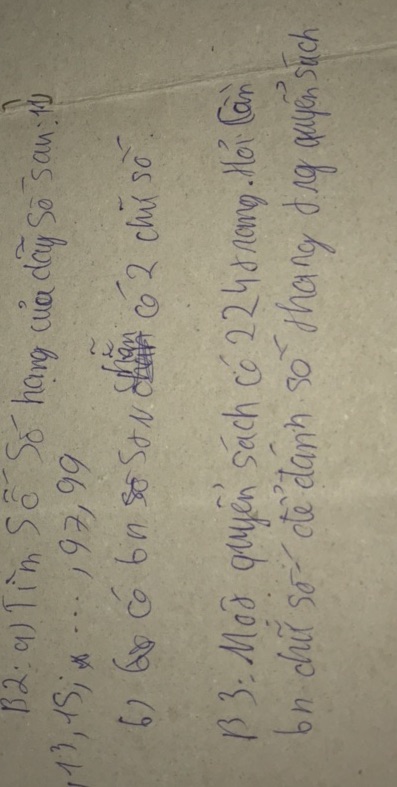 B2: a) Tìm số số hạng của dãy số sau: 11
, 13, 15; ..., 97, 99
b) có bn số STN chẵn có 2 chữ số
B3: Một quyển sách có 224 trang. Hỏi cần
bn chữ số để đánh số trang trg quyển sách